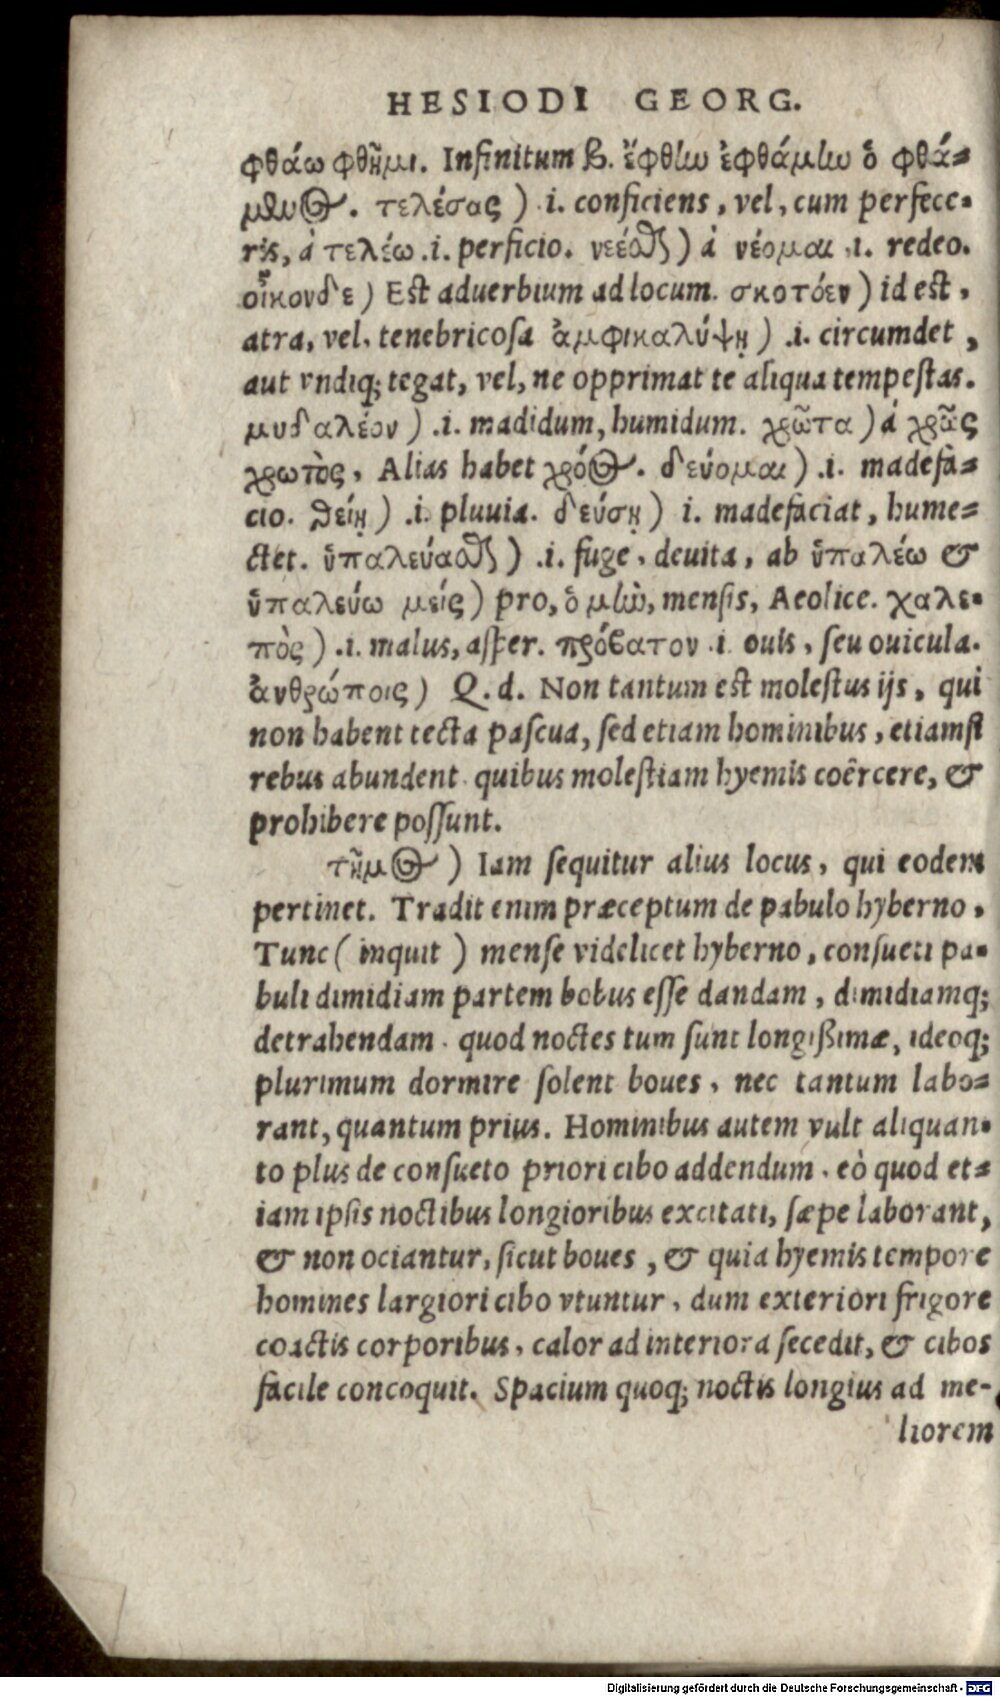 HESIODI GEORG.
φθάω φθῆμι. Infinitum β. ἔφθlω ἐφθάμlω ὁ φθά-
μlυ⊙. τελέσας ) .i. conficiens, vel, cum perfece-
ris, á τελέω .i. perficio. νεέσθαι ) á νέομαι .i. redeo.
οἶκονδε ) Est aduerbium ad locum. σκοτόεν ) id est,
atra, vel, tenebricoſa ἀμφικαλύψῃ ) .i. circumdet,
aut vndiq; tegat, vel, ne opprimat te aliqua tempeſtas.
μυδαλέον ) .i. madidum, humidum. χρῶτα ) á χρῶς
χρωτὸς, Alias habet χρό⊙. δεύομαι ) .i. madefa-
cio. θείῃ ) .i. pluuia. δεύσῃ ) i. madefaciat, hume-
ctet. ὑπαλεύασθαι ) .i. fuge, deuita, ab ὑπαλέω &
ὑπαλεύω μείς ) pro, ὁ μlὼ, menſis, Aeolice. χαλε-
πὸς ) .i. malus, aſper. πρόβατον .i. ouis, ſeu ouicula.
ἀνθρώποις ) Q. d. Non tantum est moleſtus ijs, qui
non habent tecta paſcua, ſed etiam hominibus, etiamſi
rebus abundent. quibus moleſtiam hyemis coêrcere, &
prohibere poſſunt.
τῆμ⊙ ) Iam ſequitur alius locus, qui eodem
pertinet. Tradit enim præceptum de pabulo hyberno,
Tunc ( inquit ) menſe videlicet hyberno, conſueti pa-
buli dimidiam partem bobus eſſe dandam, dimidiamq;
detrahendam. quod noctes tum ſunt longißimæ, ideoq;
plurimum dormire ſolent boues, nec tantum labo-
rant, quantum prius. Hominibus autem vult aliquan-
to plus de conſueto priori cibo addendum. eò quod et-
iam ipſis noctibus longioribus excitati, ſæpe laborant,
& non ociantur, ſicut boues, & quia hyemis tempore
homines largiori cibo vtuntur, dum exteriori frigore
coactis corporibus, calor ad interiora ſecedit, & cibos
facile concoquit. Spacium quoq; noctis longius ad me-
liorem
Digitalisierung gefördert durch die Deutsche Forschungsgemeinschaft - DFG